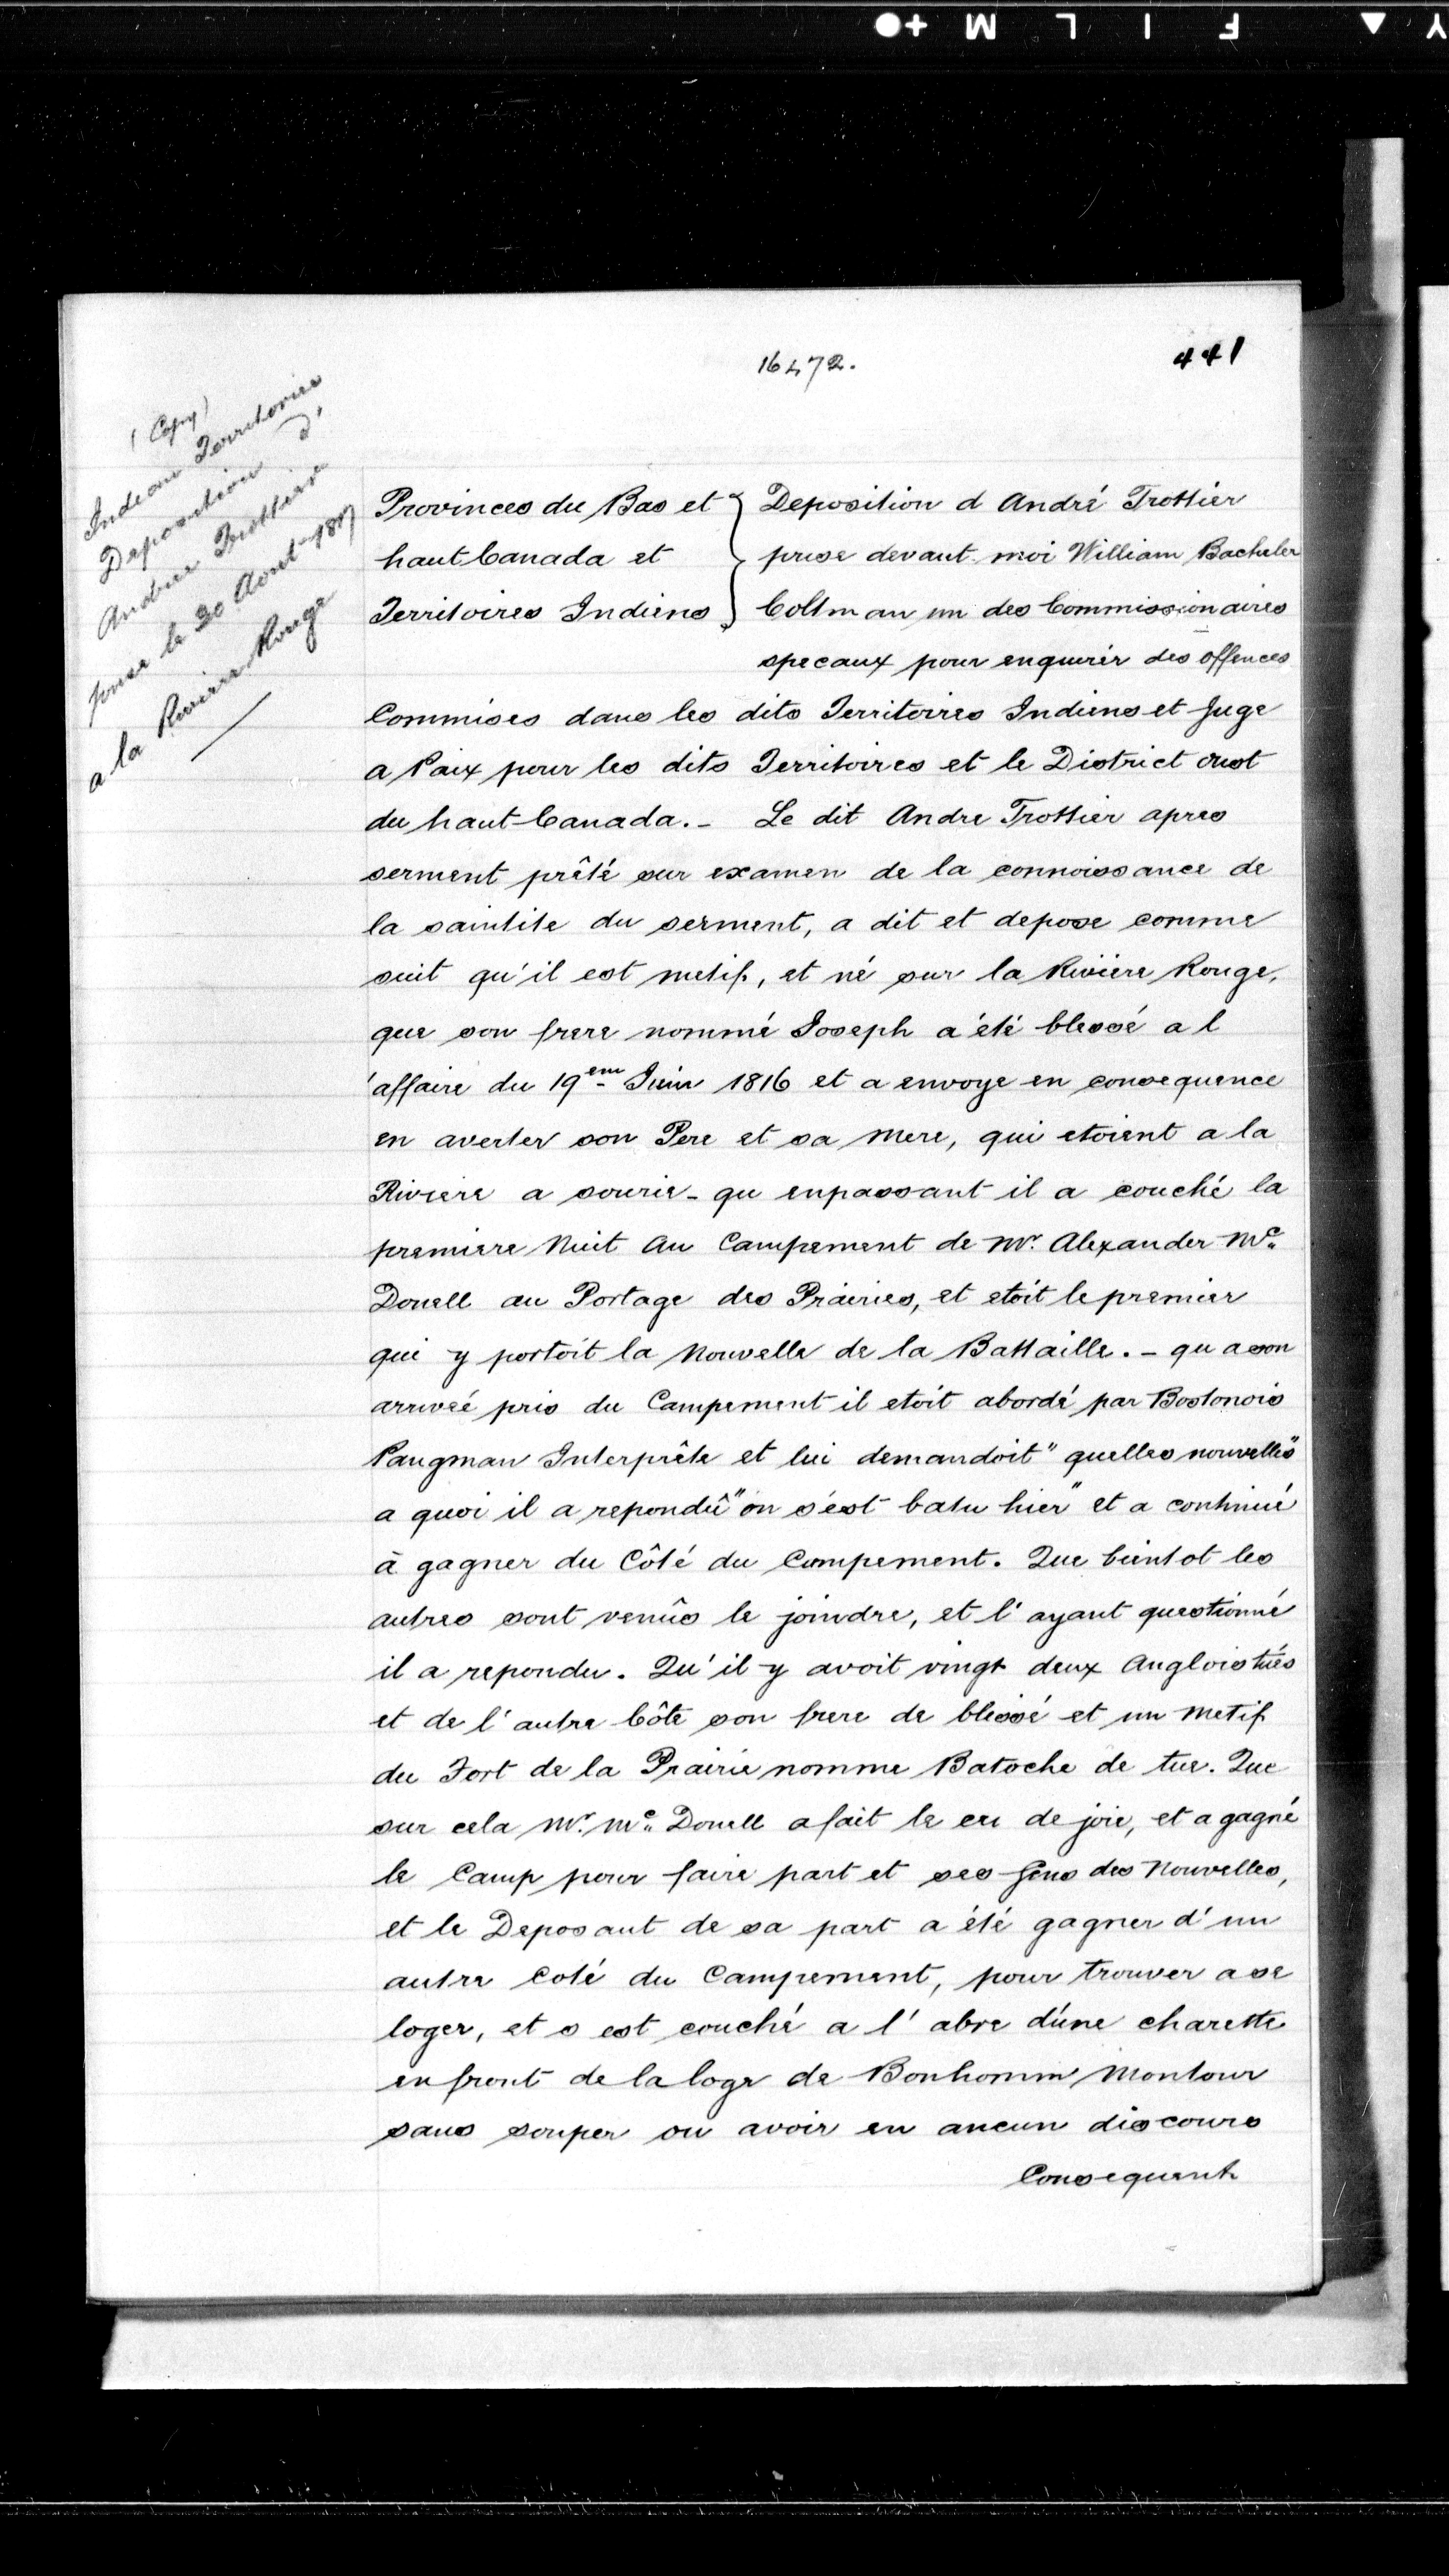 16472.
441
(Copy)
Indian Territories
Deposition d'
Andree Trottier
prise le 30 Aout 1817
a la Riviere Rouge
Provinces du Bas et } Deposition d André Trottier
haut Canada et } prise devant moi William Bacheler
Territoires Indiens } Coltman un des Commissionaires
specaux pour enquerir des offences
Commises dans les dits Territoires Indiens et Juge
a Paix pour les dits Territoires et le District oust
du haut-Canada. - Le dit Andre Trottier apres
serment prêté sur examen de la connoissance de
la saintite du serment, a dit et depose comme
suit qu'il est metif, et né sur la Riviere Rouge,
que son frere nommé Joseph a été blessé a l
'affaire du 19em Juin 1816 et a envoye en consequence
en averter son Pere et sa mere, qui etoient a la
Riviere a sourie - qu enpassant il a couché la
premiere Nuit Au Campement de Mr. Alexander Mc
Donell au Portage des Prairies, et etoit le premier
qui y portoit la Nouvelle de la Battaille. - qu a son
arriveé pris du Campement il etoit abordé par Bostonois
Pangman Interprête et lui demandoit "quelles nouvelles"
a quoi il a repondû "on s'est batu hier" et a continué
à gagner du Côté du Campement. Que bientot les
autres sont venûs le joindre, et l'ayant questionné
il a repondu. Qu'il y avoit vingt deux Anglois tués
et de l'autre Côte son frere de blessé et un Metif
du Fort de la Prairie nomme Batoche de tue. Que
sur cela Mr. Mc Donell a fait le cri de joie, et a gagné
le Camp pour faire part et ses Gens des Nouvelles,
et le Deposant de sa part a été gagner d'un
autre Coté du Campement, pour trouver a se
loger, et s est couché a l'abre d'une charette
en front de la loge de Bonhomm Montour
sans souper ou avoir en aucun discours
Consequent